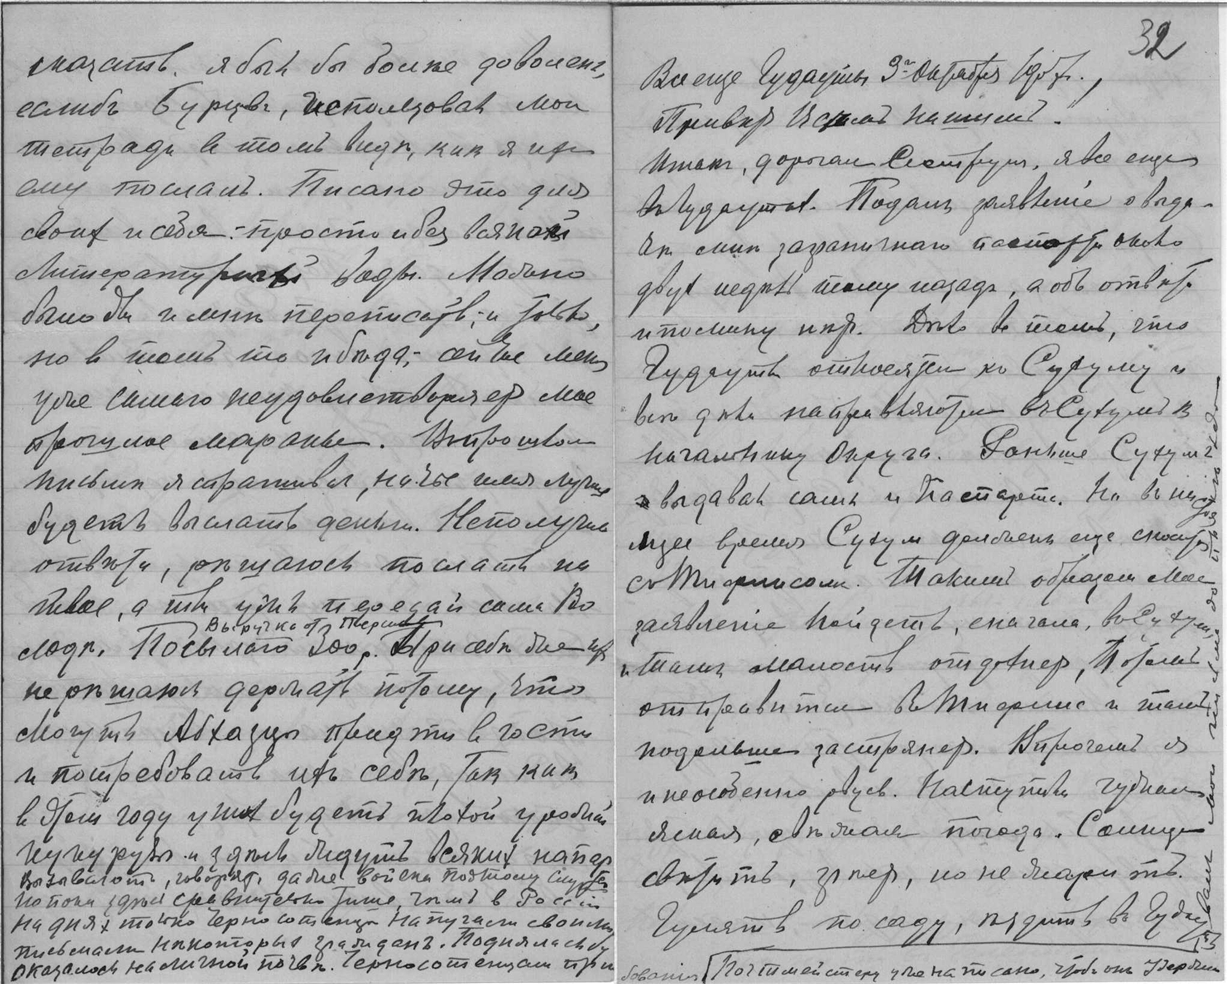 сказать. Я был бы более доволенъ,
еслибъ Бурцевъ, использовал мои
тетради в томъ виде, как я их
ему послалъ. Писано это для
своих и себя - просто и без всякой
Литературной воды. Можно
было бы и мне переписать, и
но в томъ то и беда, - сейчас меня
уже самого неудовлетворяет мое
прошлое маранье. В прошлом
письме я спрашивал, на чье имя лучше
будетъ выслать деньги. Не получив
ответа, решаюсь послать на
твое, а ты ужъ передай сама Во
лоде. Посылаю 200 р. При себе более их
Выручка от Перловъ
не решаюсь держать потому, что
могутъ Абхазцы придти в гости
и потребовать их себе, так как
в этом году у них будетъ плохой урожай
кукурузы и здесь ждутъ всяких напас
Вызываютъ, говорят, даже войска поэтому случаю
Но пока здесь сравнительно тише, чемъ в России
На днях только Черносотенцы напугали своими
письмами некоторых граждан. Поднялась бу
оказалось на личной почве. Черносотенцам
32
Все еще Гудауты 3го Октября 1907 г.,
Привет Вс��мъ нашимъ.
Итакъ, дорогая Сеструня, я все еще
в Гудаутах. Подалъ заявленiе о выда-
че мне заграничнаго паспорта около
двух недель тому назадъ, а объ ответе
и помину нет. Дело в томъ, что
Гудауты относятся к Сухуму и
все дела направляются въ Сухумъ к
начальнику Округа. Раньше Сухумъ
выдавал самъ и Паспорта. Но в ны
нешнее время Сухум должен еще снестись
съ Тифлисом. Такимъ образом мое
заявленiе пойдетъ, сначала, в Сухум,
и тамъ малость отдохнет, Потомъ
отправится в Тифлис и тамъ
подольше застрянет. Впрочемъ я
и не особенно рвусь. Наступила чудная
ясная, свежая погода. Солнце
светитъ, греет, но не жаритъ.
Гулять по саду, ездить в Гудауты
бованiя Почтмейстеру уже написано, чтобы он